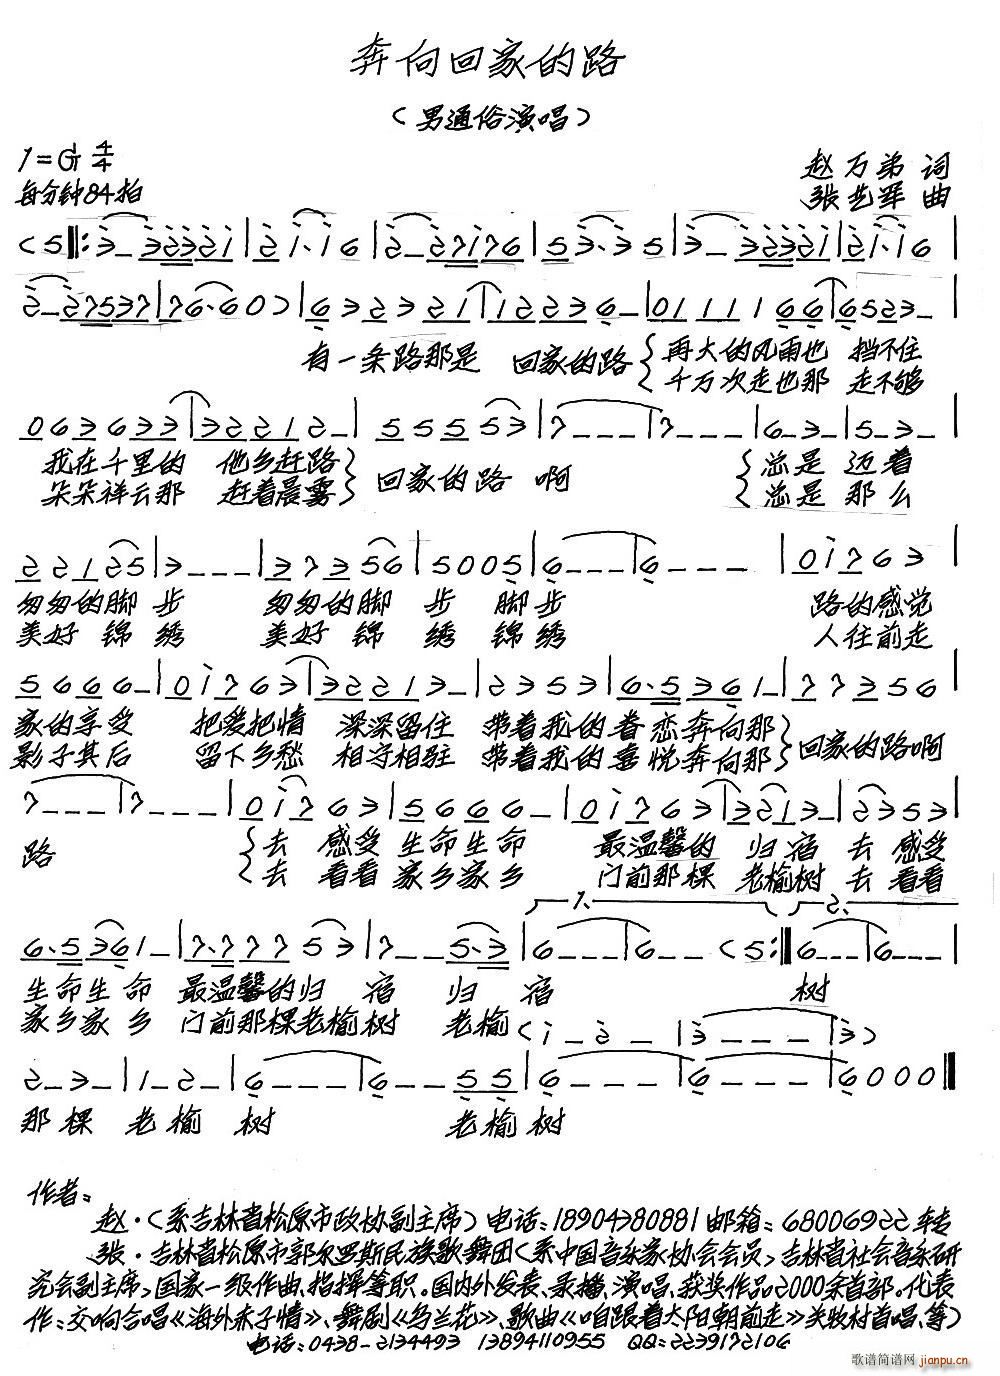 奔向回家的路
（男通俗演唱）
1=G 4/4
赵万弟 词
每分钟84拍
张艺军 曲
有一条路那是 回家的路 再大的风雨也 挡不住
千万次走也那 走不够
我在千里的 他乡赶路 回家的路 啊 总是 迈着
朵朵祥云那 赶着晨雾 总是 那么
匆匆的脚 步 匆匆的脚 步 脚步 路的感觉
美好 锦 绣 美好 锦 绣 锦绣 人往前走
家的享受 把爱把情 深深留住 带着我的眷 恋奔向那 回家的路啊
影子其后 留下乡愁 相守相驻 带着我的喜 悦奔向那
路 去 感受 生命生命 最温馨的 归 宿 去 感受
去 看看 家乡家乡 门前那棵 老榆树 去 看看
1、 2、
生命生 命 最温馨的归 宿 归 宿 树
家乡家 乡 门前那棵老榆树 老榆
那 棵 老 榆 树 老榆 树
作者：
赵·（系吉林省松原市政协副主席）电话：18904380881 邮箱：68006922转
张·吉林省松原市郭尔罗斯民族歌舞团（系中国音乐家协会会员，吉林省社会音乐研
究会副主席，国家一级作曲、指挥等职。国内外发表、录播、演唱、获奖作品2000余首部。代表
作：交响合唱《海外赤子情》、舞剧《乌兰花》、歌曲《咱跟着太阳朝前走》关牧村首唱、等）
电话：0438-2134493 13894110955 QQ：2239172106
歌谱简谱网 jianpu.cn